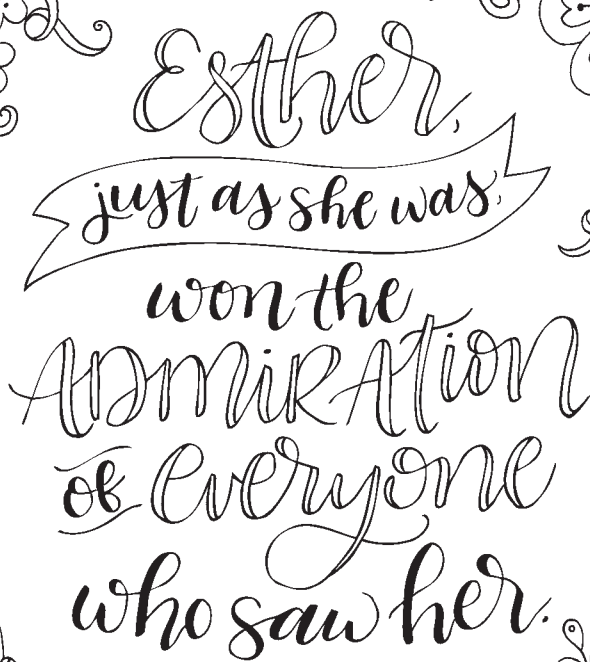 Esther,
just as she was,
won the
ADMiRATion
of everyone
who saw her.